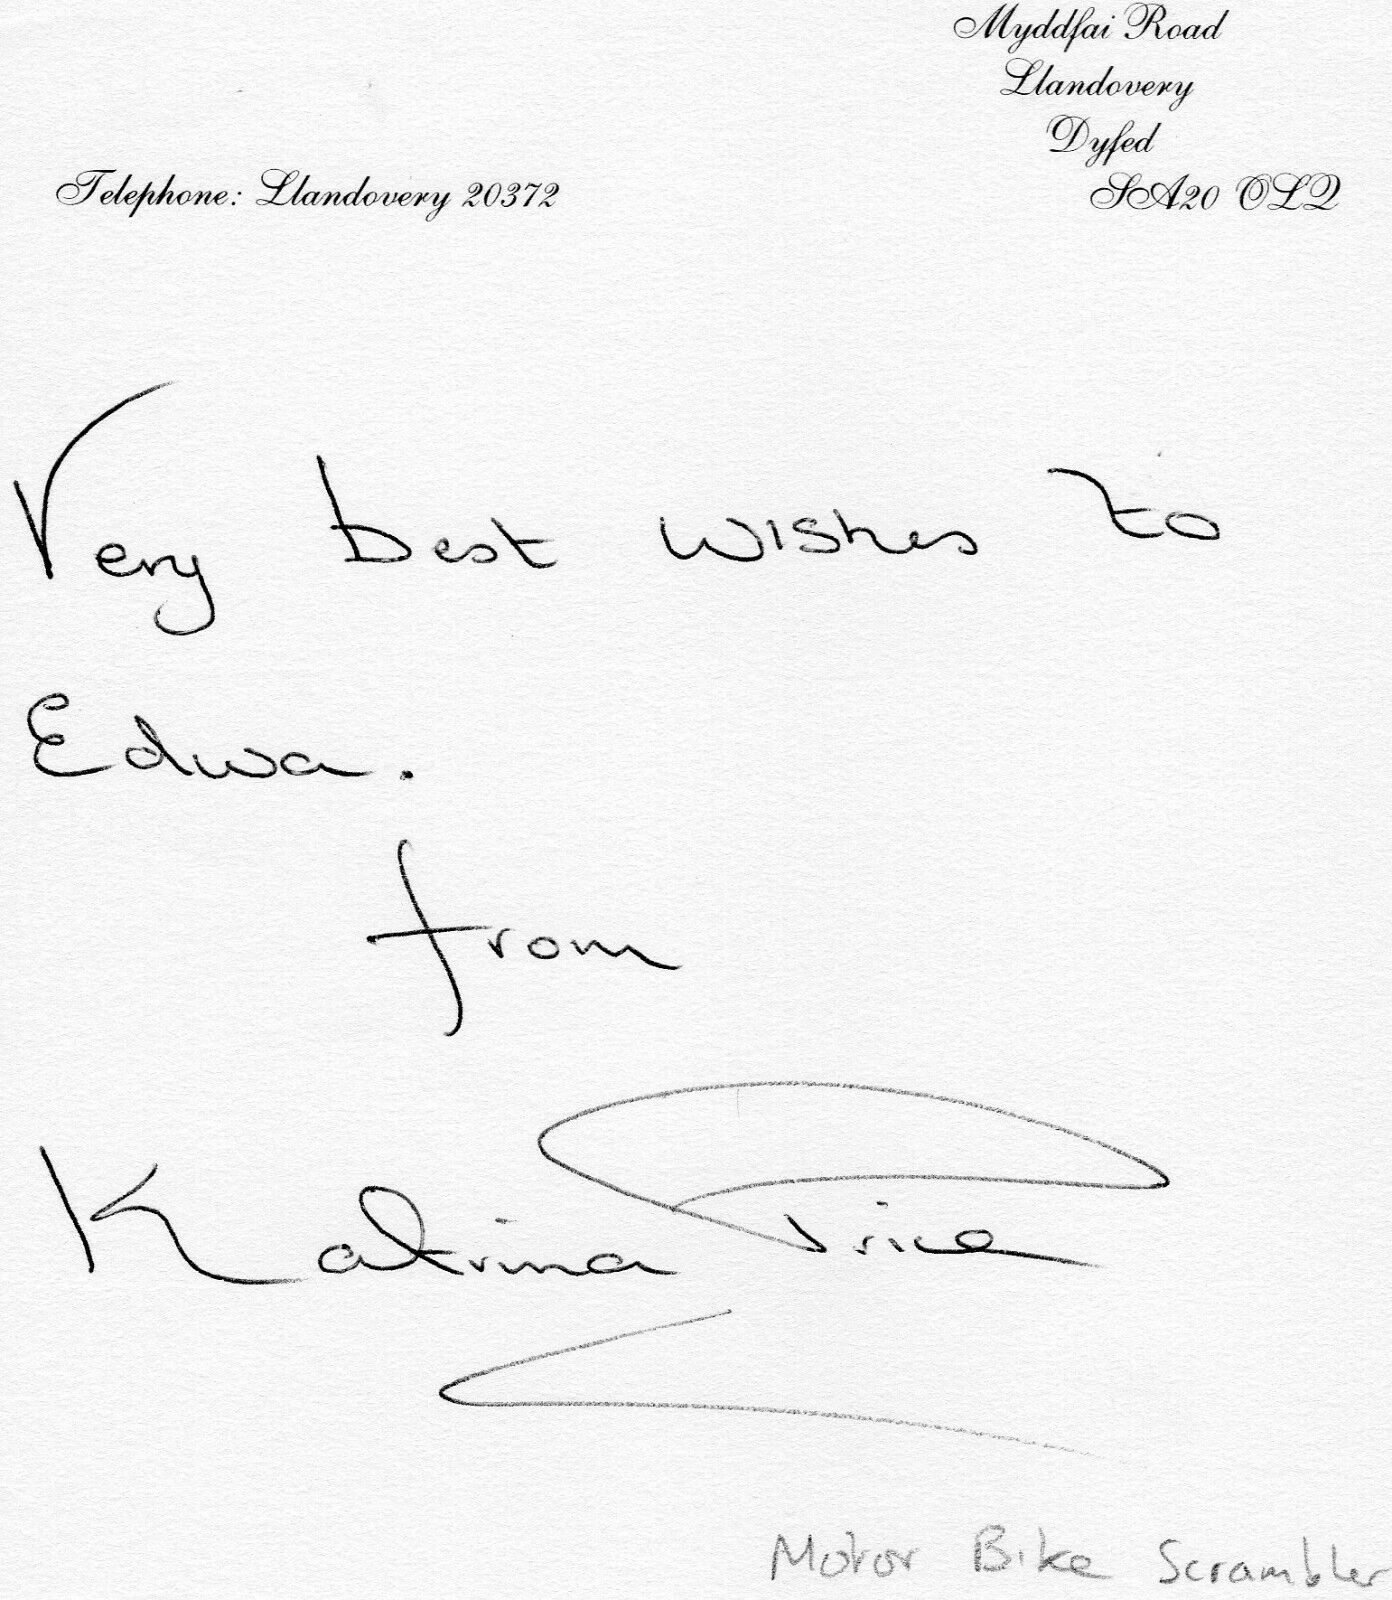 Myddfai Road
Llandovery
Dyfed
Telephone: Llandovery 20372 SA20 0LQ
Very best wishes to
Edwa.
from
Katrina Price
Motor Bike Scrambler